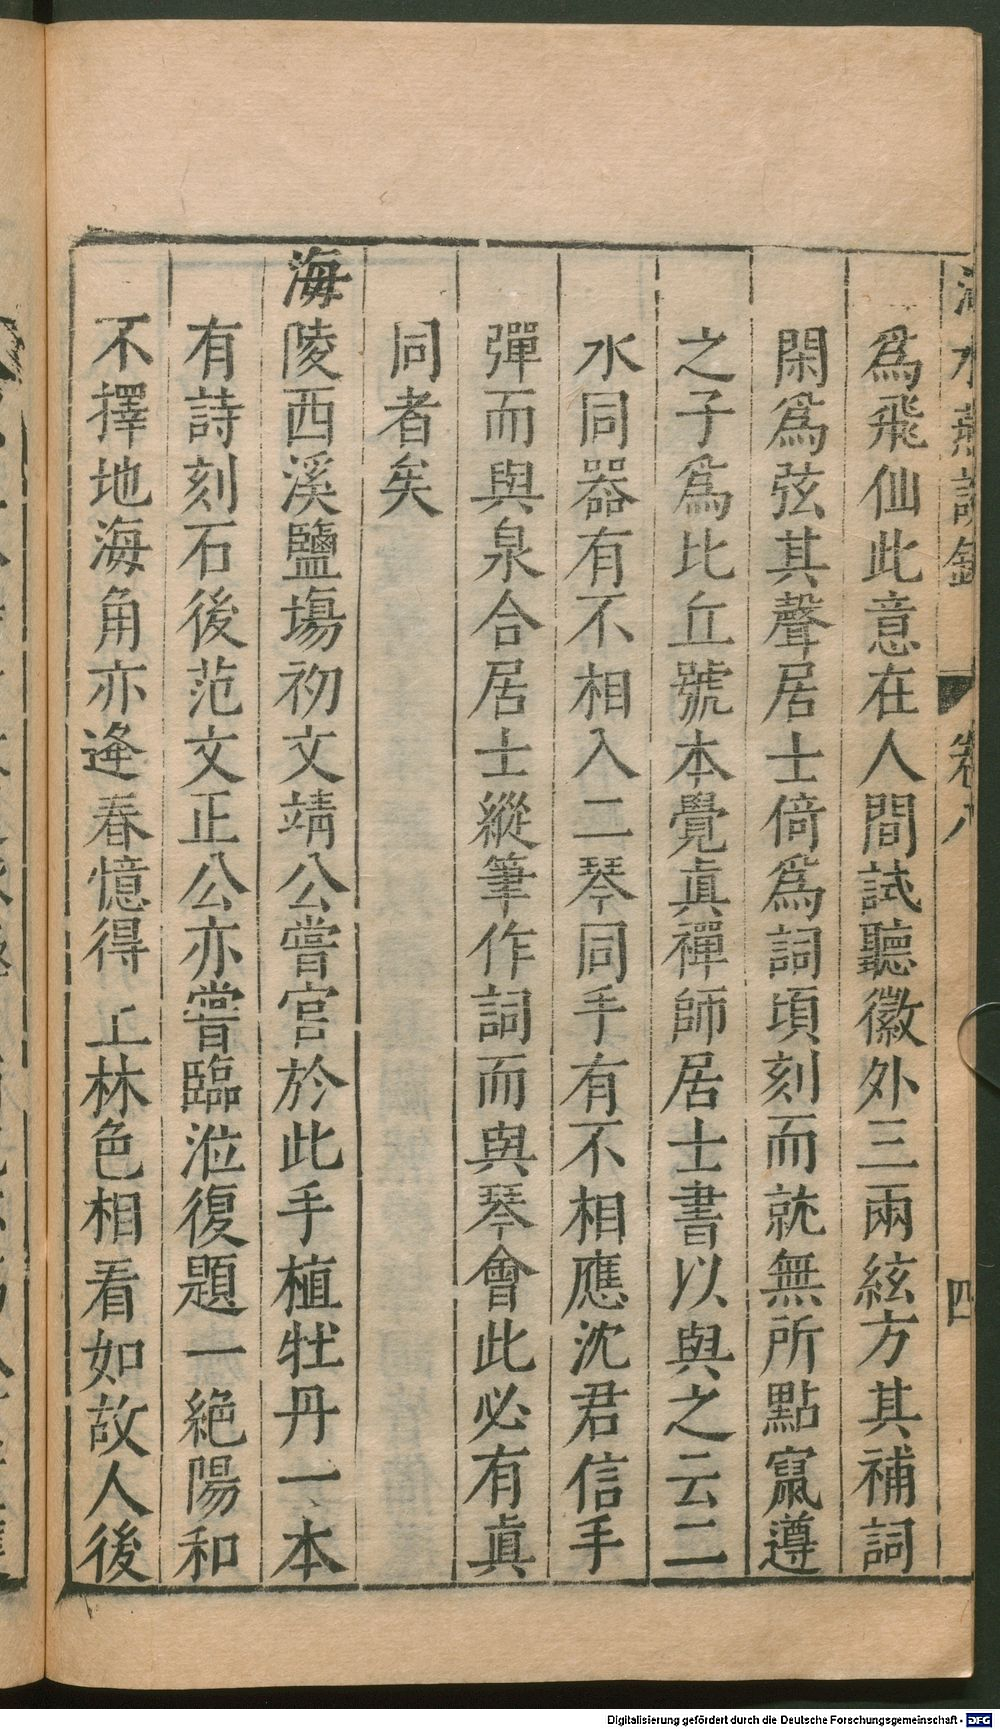 澠水燕談錄 卷八 四
爲飛仙此意在人間試聽徽外三兩絃方其補詞
閑爲弦其聲居士倚爲詞頃刻而就無所點竄遵
之子爲比丘號本覺眞禪師居士書以與之云二
水同器有不相入二琴同手有不相應沈君信手
彈而與泉合居士縱筆作詞而與琴會此必有眞
同者矣
海陵西溪鹽塲初文靖公嘗官於此手植牡丹一本
有詩刻石後范文正公亦嘗臨涖復題一絕陽和
不擇地海角亦逄春憶得上林色相看如故人後
Digitalisierung gefördert durch die Deutsche Forschungsgemeinschaft - DFG